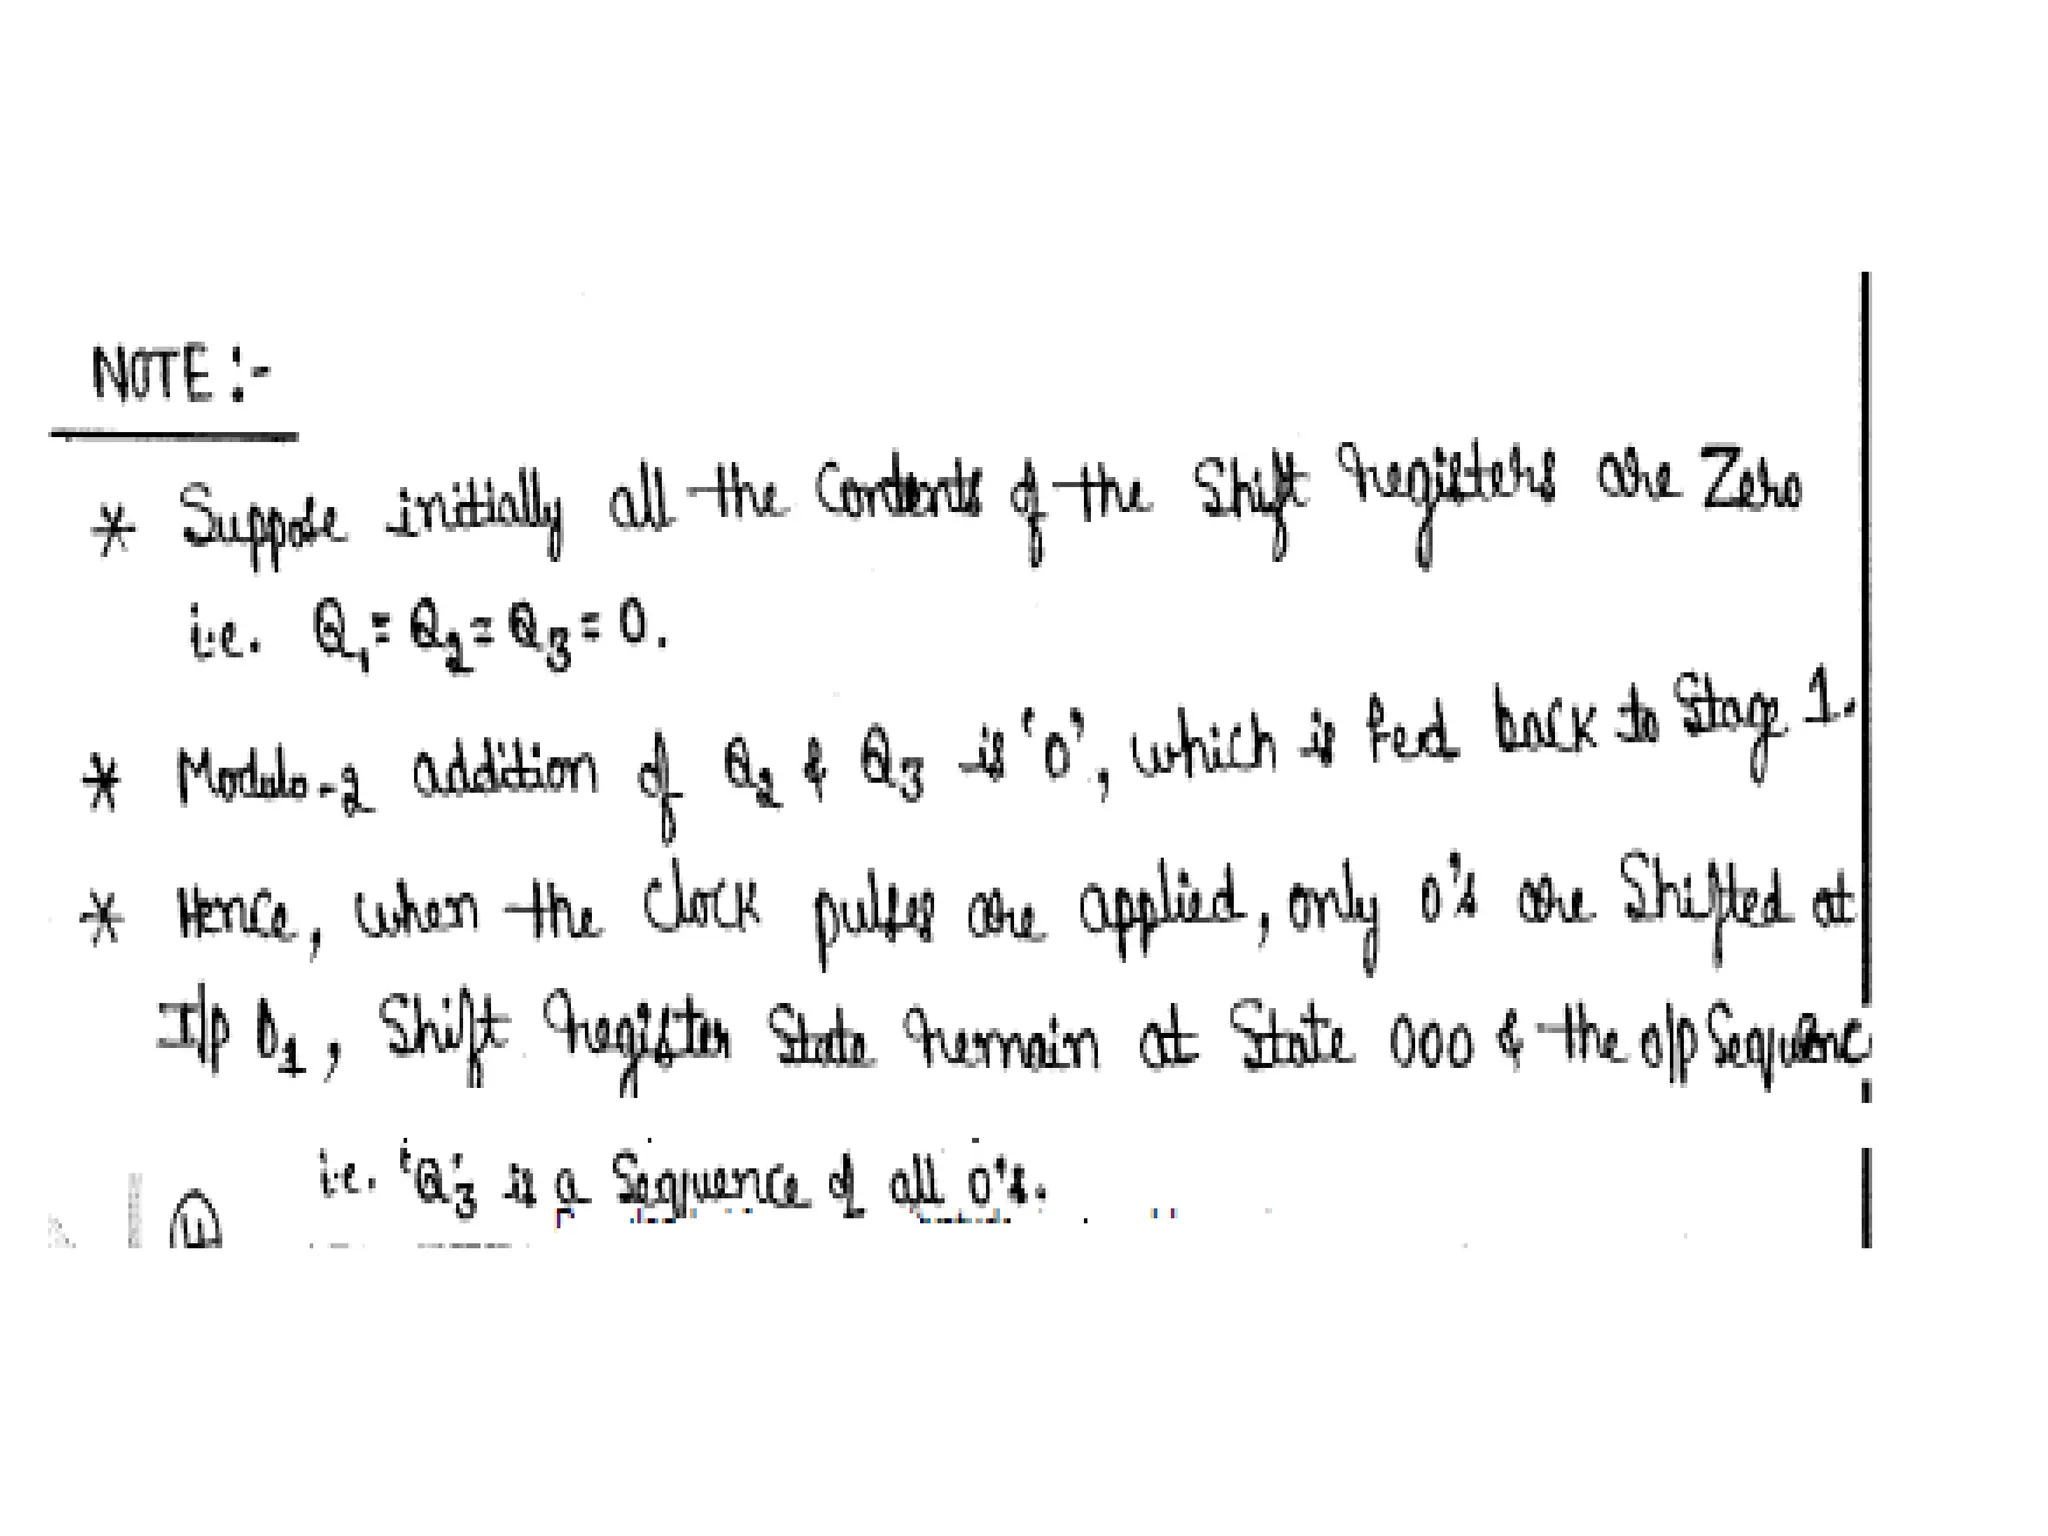 NOTE :-
* Suppose initially all the Contents of the Shift registers are Zero
i.e. Q₁ = Q₂ = Q₃ = 0.
* Modulo-2 addition of Q₂ & Q₃ is '0', which is fed back to Stage 1.
* Hence, when the Clock pulses are applied, only 0's are Shifted at
I/p D₁, Shift register State remain at State 000 & the o/p Sequenc
i.e. 'Q₃' is a Sequence of all 0's.